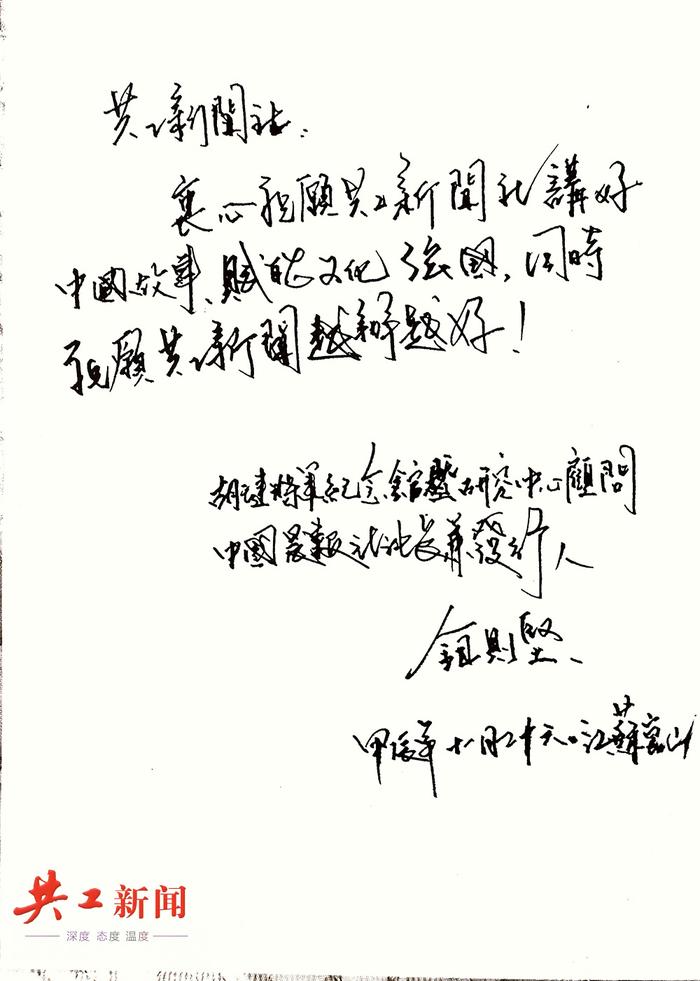 共工新聞社:
衷心祝願共工新聞社講好
中國故事、賦能文化強國,同時
祝願共工新聞越辦越好!
胡璉將軍紀念館暨研究中心顧問
中國晨報社社長兼發行人
則堅
甲辰年十月二十 江蘇崑山
共工新闻
深度 态度 温度